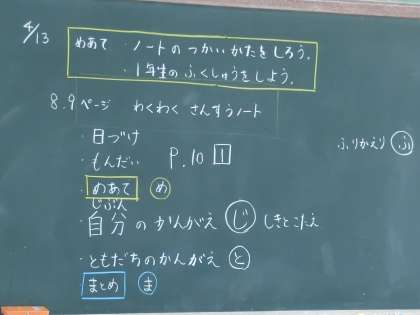 4/13
めあて ・ノートのつかいかたをしろう。
・1年生のふくしゅうをしよう。
8.9ページ わくわく さんすうノート
・日づけ
・もんだい P.10 1
・めあて め
じぶん
・自分のかんがえ じ しきとこたえ
・ともだちのかんがえ と
・まとめ ま
ふりかえり ふ